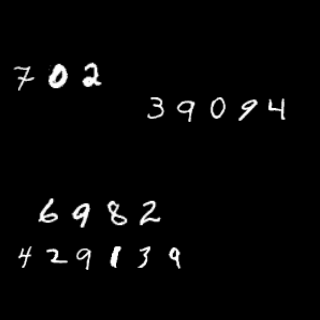 702
39094
6982
429139